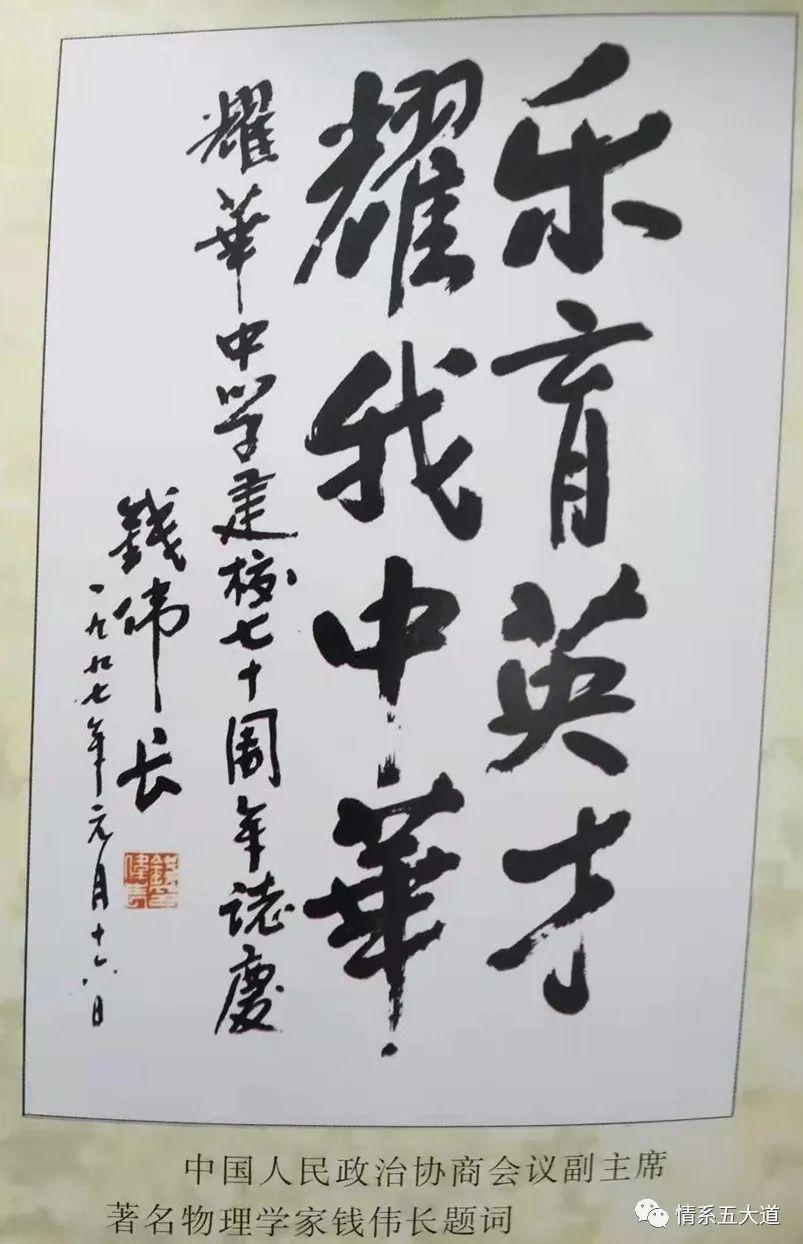 乐育英才
耀我中華
耀華中学建校七十周年誌慶
錢伟长
一九九七年元月十六日
中国人民政治协商会议副主席
著名物理学家钱伟长题词
情系五大道